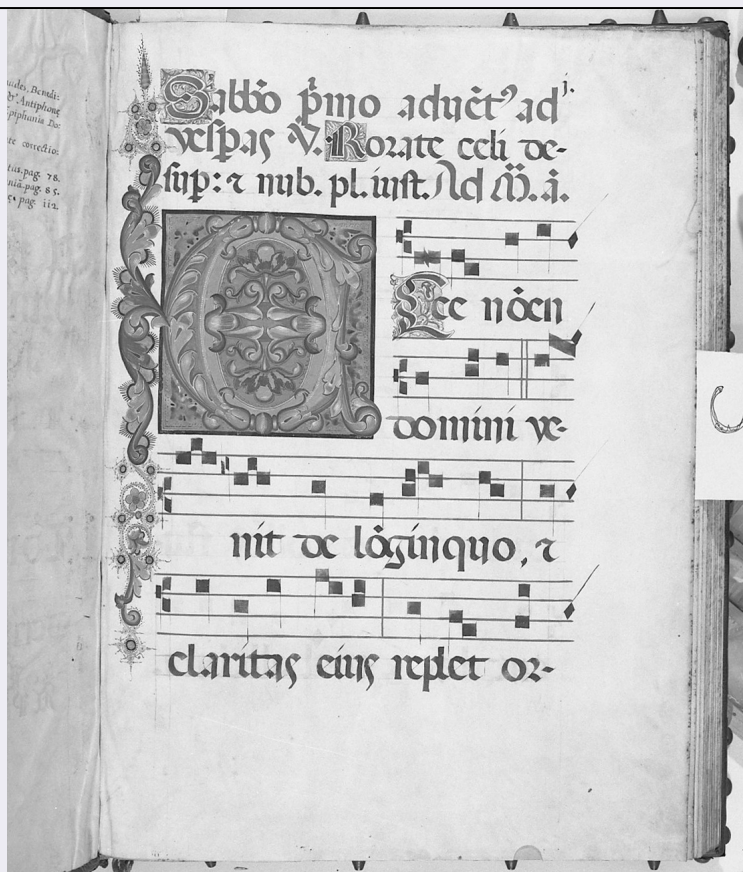 Sabbo p̄mo aduēt⁹ ad j.
vesp̄as V. Rorate celi de-
sup: ⁊ nub. pl. iust. Ad M. ā.
Ecce nōen
domini ve-
nit de lōginquo, ⁊
claritas eius replet or-
Antiphone
piphania Do:
correctio:
pag. 78.
pag. 85.
pag. 112.